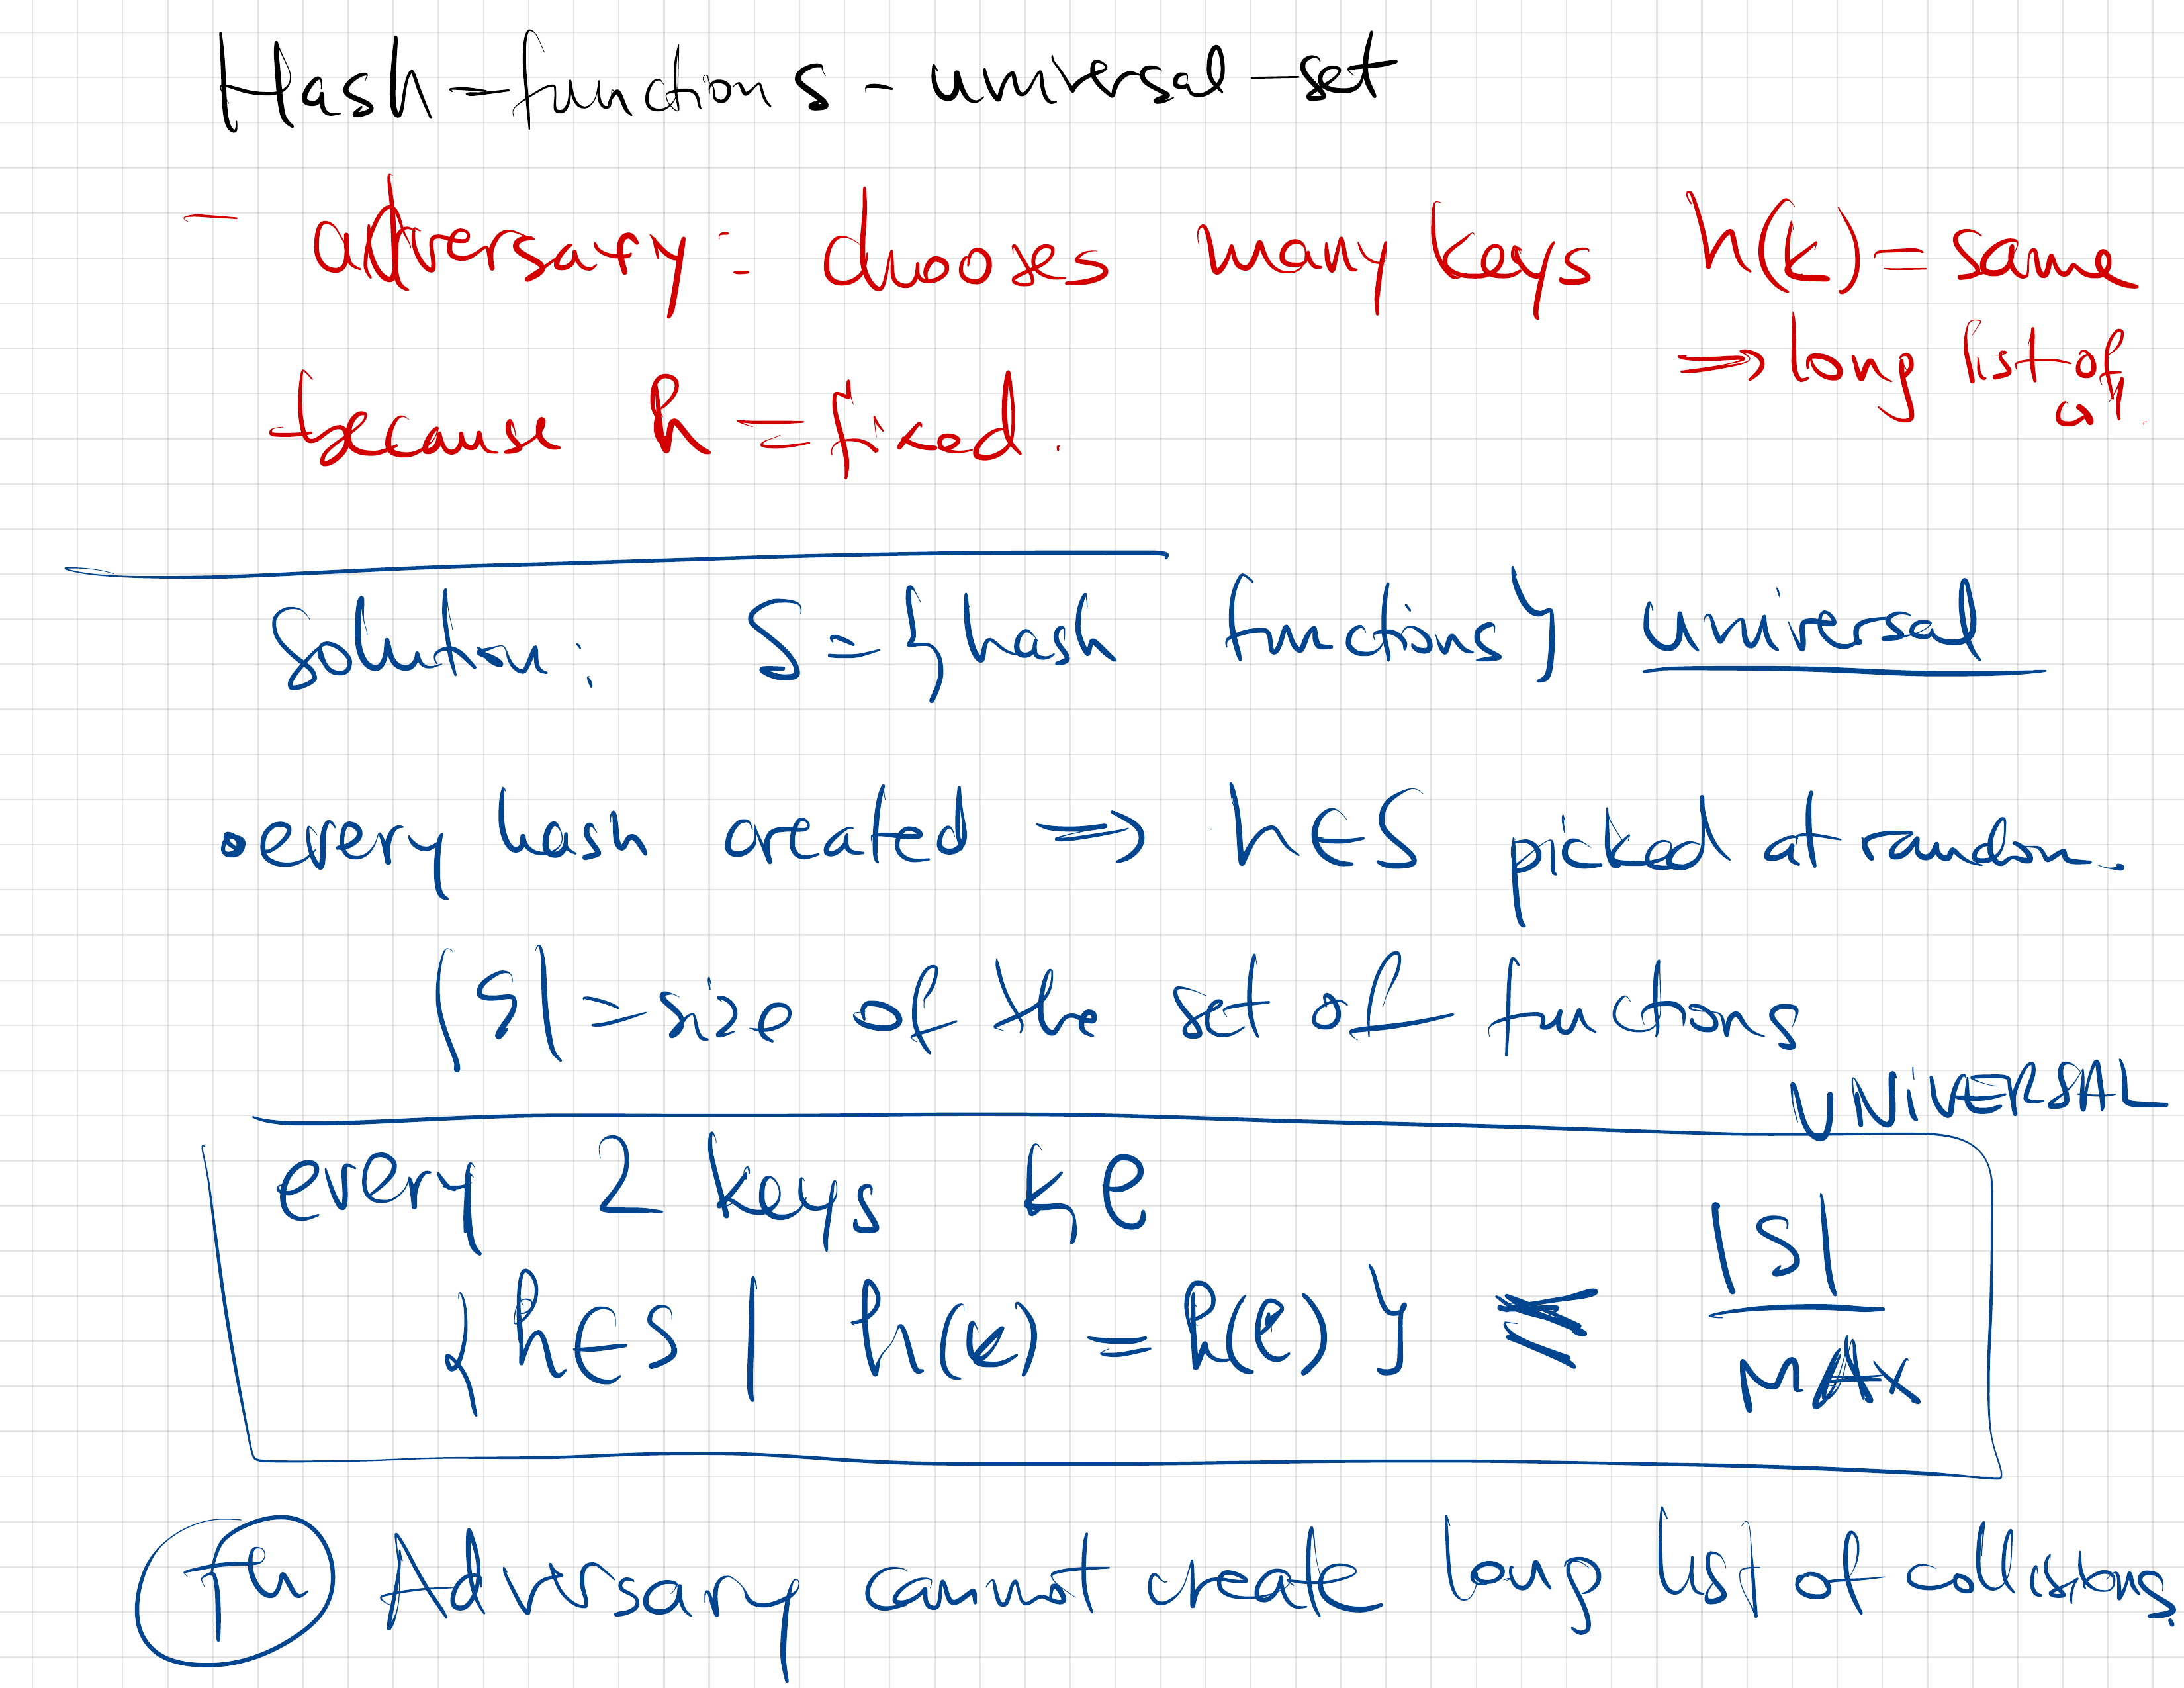 Hash-functions-universal-set
- adversary: chooses many keys h(k)=same
⇒ long list of
because h = fixed.
col.
Solution: S={hash functions} universal
• every hash created ⇒ h∈S picked at random.
|S| = size of the set of functions
UNIVERSAL
every 2 keys k,l
{h∈S | h(k) = h(l)} ≤ |S|
MAX
Th Adversary cannot create long list of collisions.